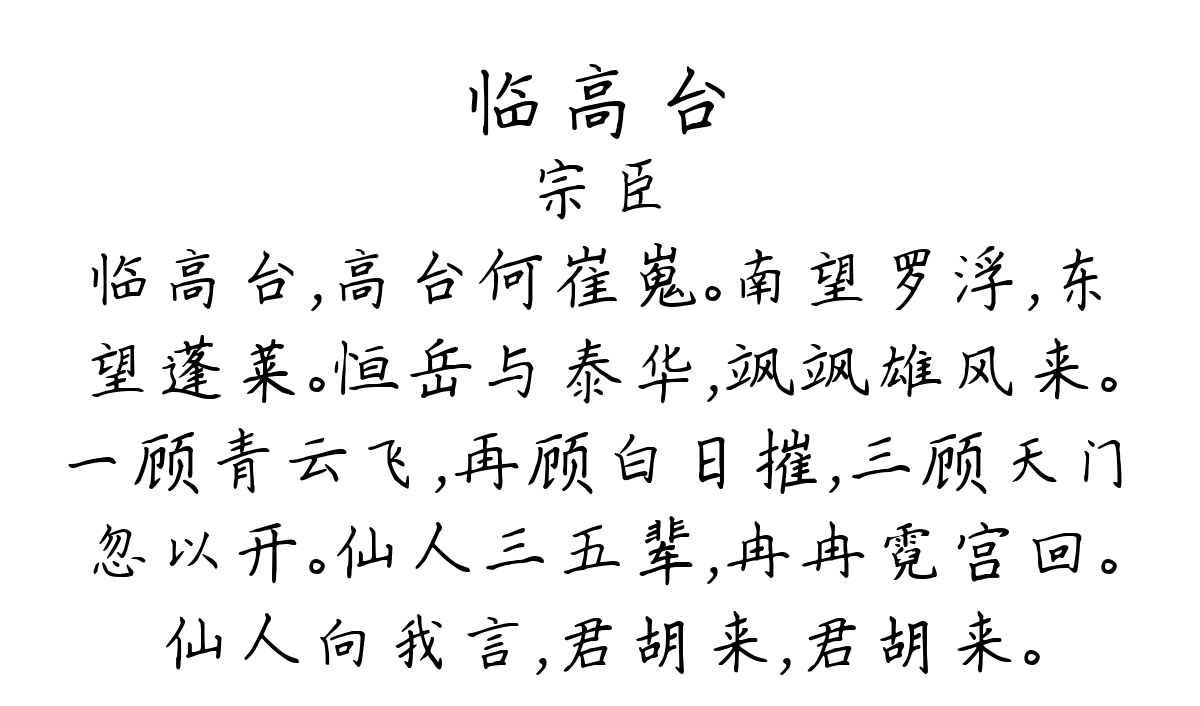 临高台
宗臣
临高台,高台何崔嵬。南望罗浮,东
望蓬莱。恒岳与泰华,飒飒雄风来。
一顾青云飞,再顾白日摧,三顾天门
忽以开。仙人三五辈,冉冉霓宫回。
仙人向我言,君胡来,君胡来。